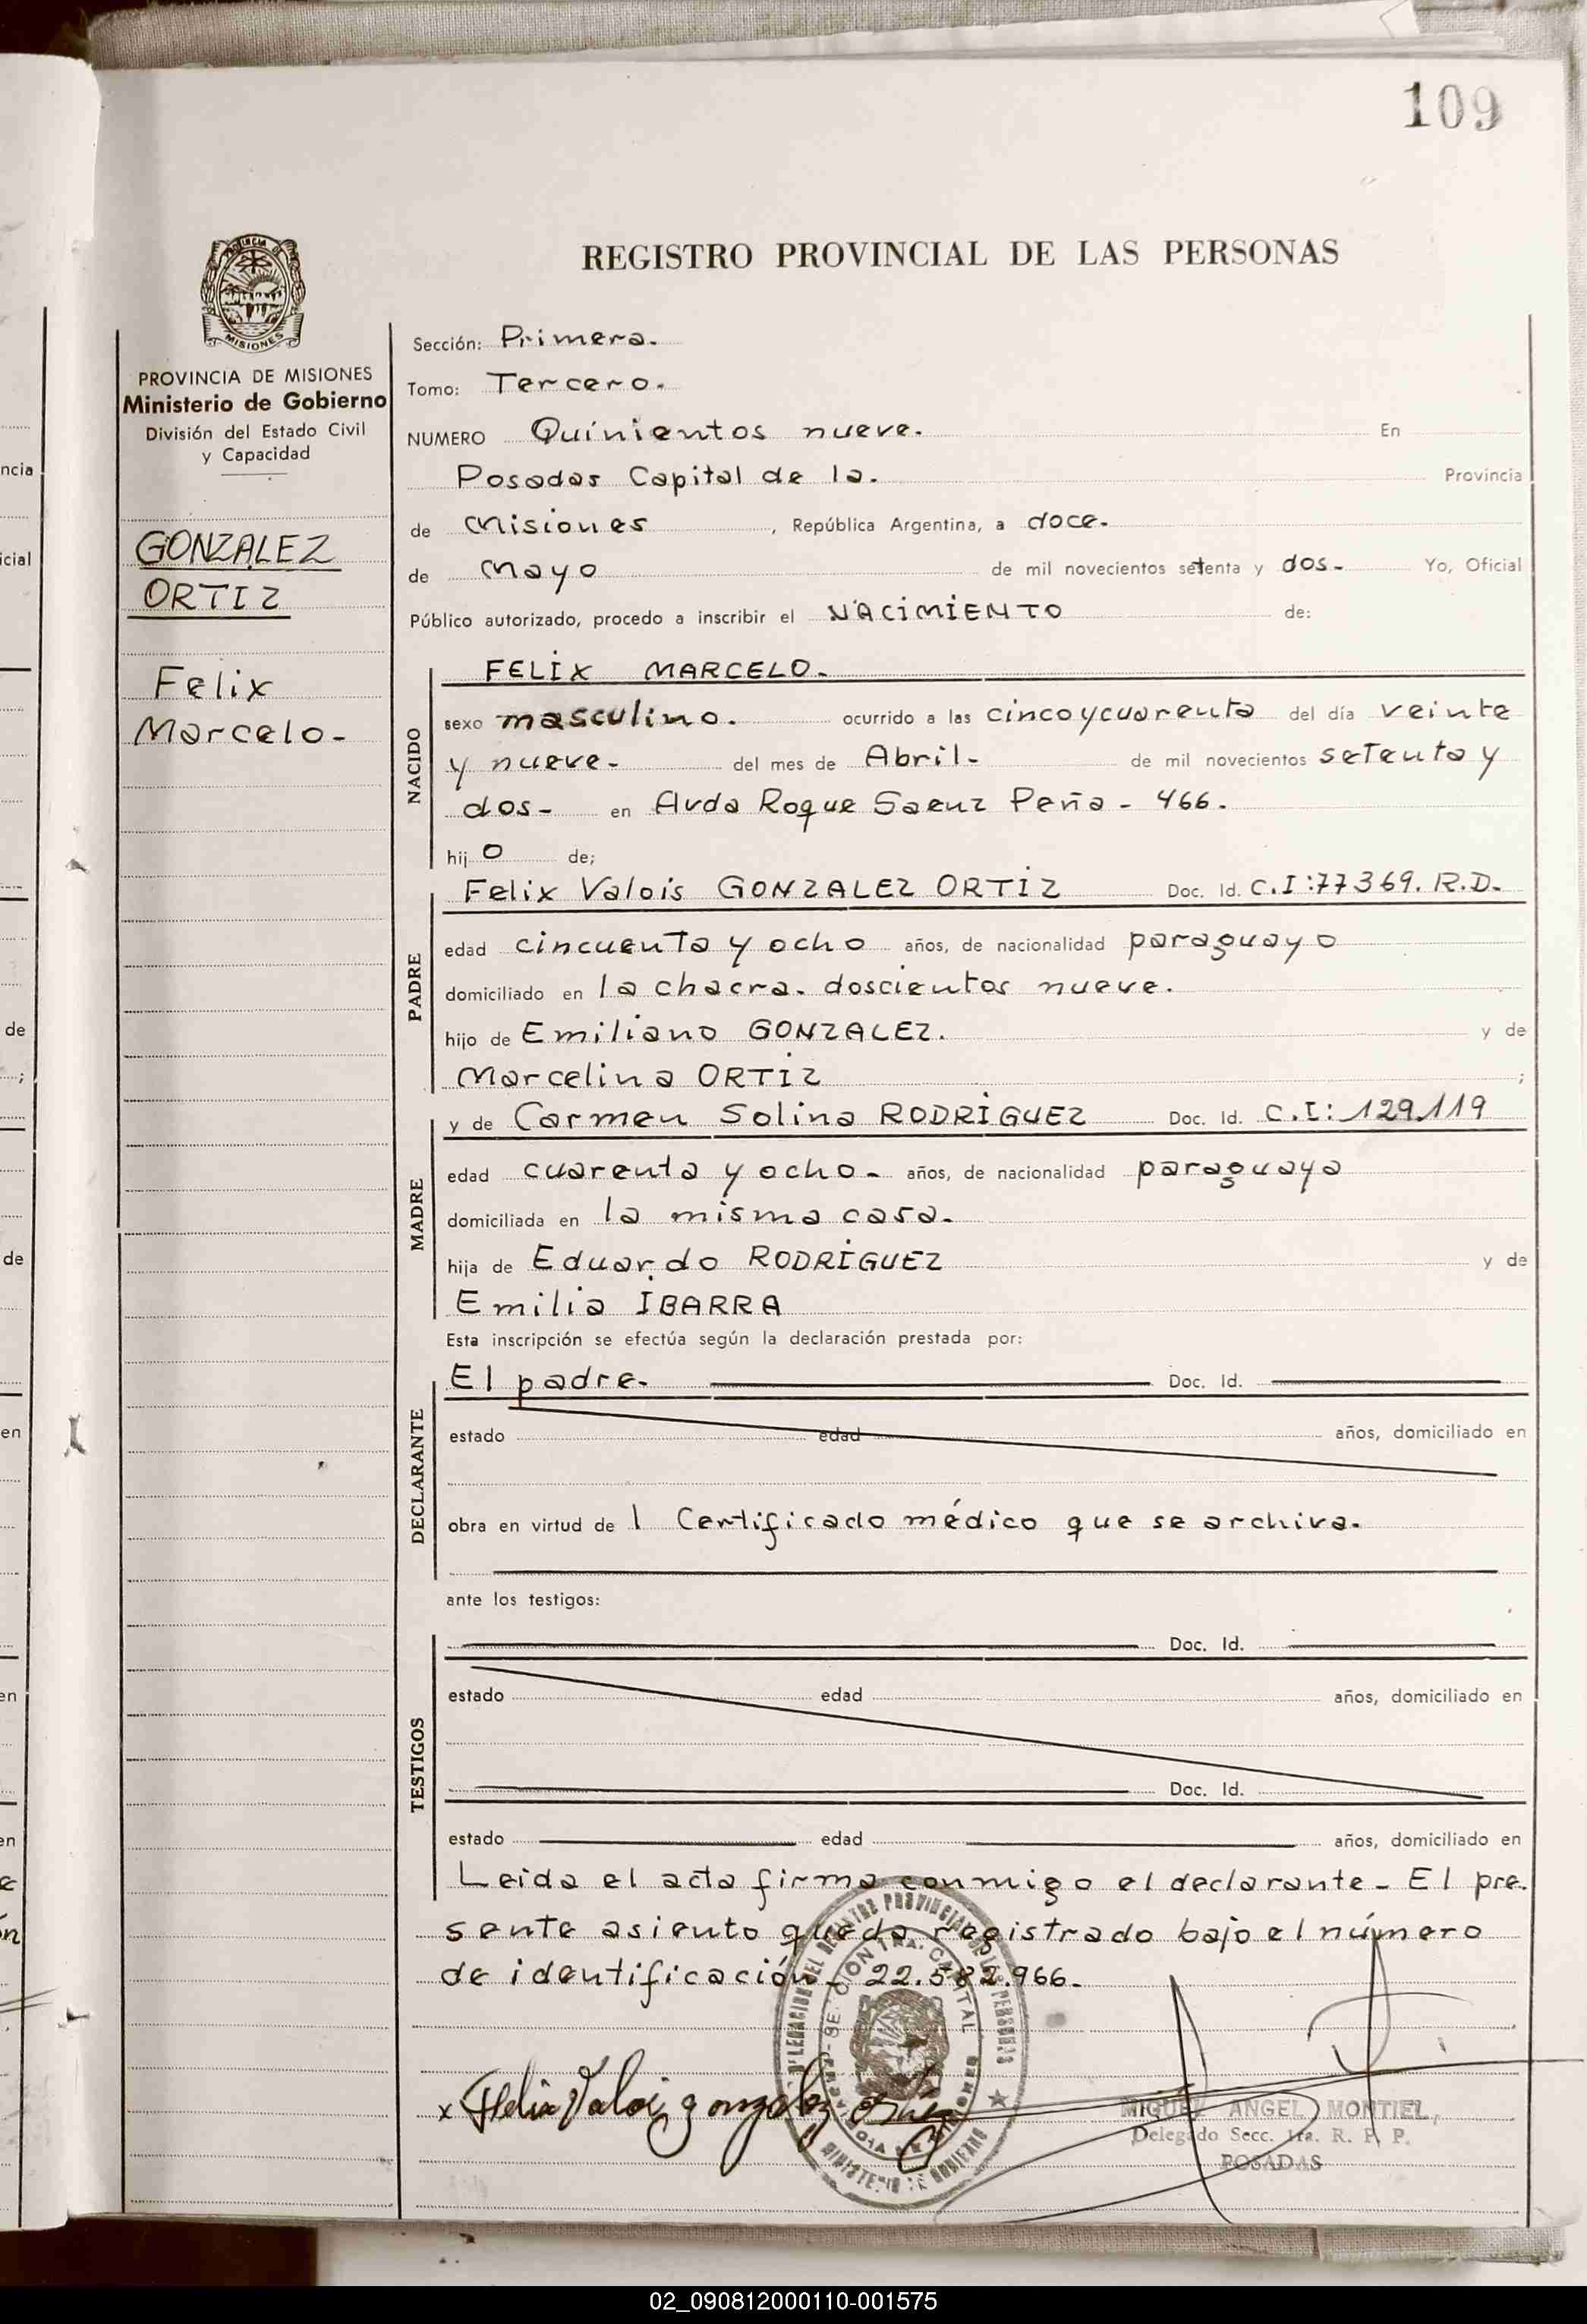 109
PROVINCIA DE MISIONES
REGISTRO PROVINCIAL DE LAS PERSONAS
PROVINCIA DE MISIONES
Ministerio de Gobierno
División del Estado Civil
y Capacidad
GONZALEZ
ORTIZ
Felix
Marcelo-
Sección: Primera.
Tomo: Tercero.
NUMERO Quinientos nueve. En
Posadas Capital de la. Provincia
de Misiones, República Argentina, a doce.
de Mayo de mil novecientos setenta y dos- Yo, Oficial
Público autorizado, procedo a inscribir el NACIMIENTO de:
NACIDO
FELIX MARCELO.
sexo masculino. ocurrido a las cinco y cuarenta del día veinte
y nueve- del mes de Abril- de mil novecientos setenta y
dos- en Avda Roque Saenz Peña - 466.
hij o de;
PADRE
Felix Valois GONZALEZ ORTIZ Doc. Id. C.I:77369. R.D.
edad cincuenta y ocho años, de nacionalidad paraguayo
domiciliado en la chacra. doscientos nueve.
hijo de Emiliano GONZALEZ. y de
Marcelina ORTIZ ;
MADRE
y de Carmen Solina RODRIGUEZ Doc. Id. C.I: 129.119
edad cuarenta y ocho- años, de nacionalidad paraguaya
domiciliada en la misma casa.
hija de Eduardo RODRIGUEZ y de
Emilia IBARRA
Esta inscripción se efectúa según la declaración prestada por:
DECLARANTE
El padre. Doc. Id.
estado edad años, domiciliado en
obra en virtud de 1 Certificado médico que se archiva.
ante los testigos:
TESTIGOS
Doc. Id.
estado edad años, domiciliado en
Doc. Id.
estado edad años, domiciliado en
Leida el acta firma conmigo el declarante- El pre.
sente asiento queda registrado bajo el número
de identificación- 22.582.966-
x Felix Valois gonzalez Ortiz
MIGUEL ANGEL MONTIEL,
Delegado Secc. 1ra. R. P. P.
POSADAS
02_090812000110-001575